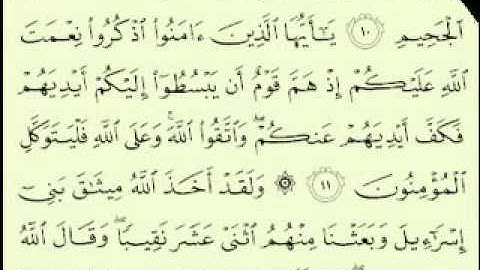 ٱلْجَحِيمِ ١٠ يَـٰٓأَيُّهَا ٱلَّذِينَ ءَامَنُوا۟ ٱذْكُرُوا۟ نِعْمَتَ
ٱللَّهِ عَلَيْكُمْ إِذْ هَمَّ قَوْمٌ أَن يَبْسُطُوٓا۟ إِلَيْكُمْ أَيْدِيَهُمْ
فَكَفَّ أَيْدِيَهُمْ عَنكُمْ ۖ وَٱتَّقُوا۟ ٱللَّهَ ۚ وَعَلَى ٱللَّهِ فَلْيَتَوَكَّلِ
ٱلْمُؤْمِنُونَ ١١ ۞ وَلَقَدْ أَخَذَ ٱللَّهُ مِيثَـٰقَ بَنِىٓ
إِسْرَٰٓءِيلَ وَبَعَثْنَا مِنْهُمُ ٱثْنَىْ عَشَرَ نَقِيبًا ۖ وَقَالَ ٱللَّهُ